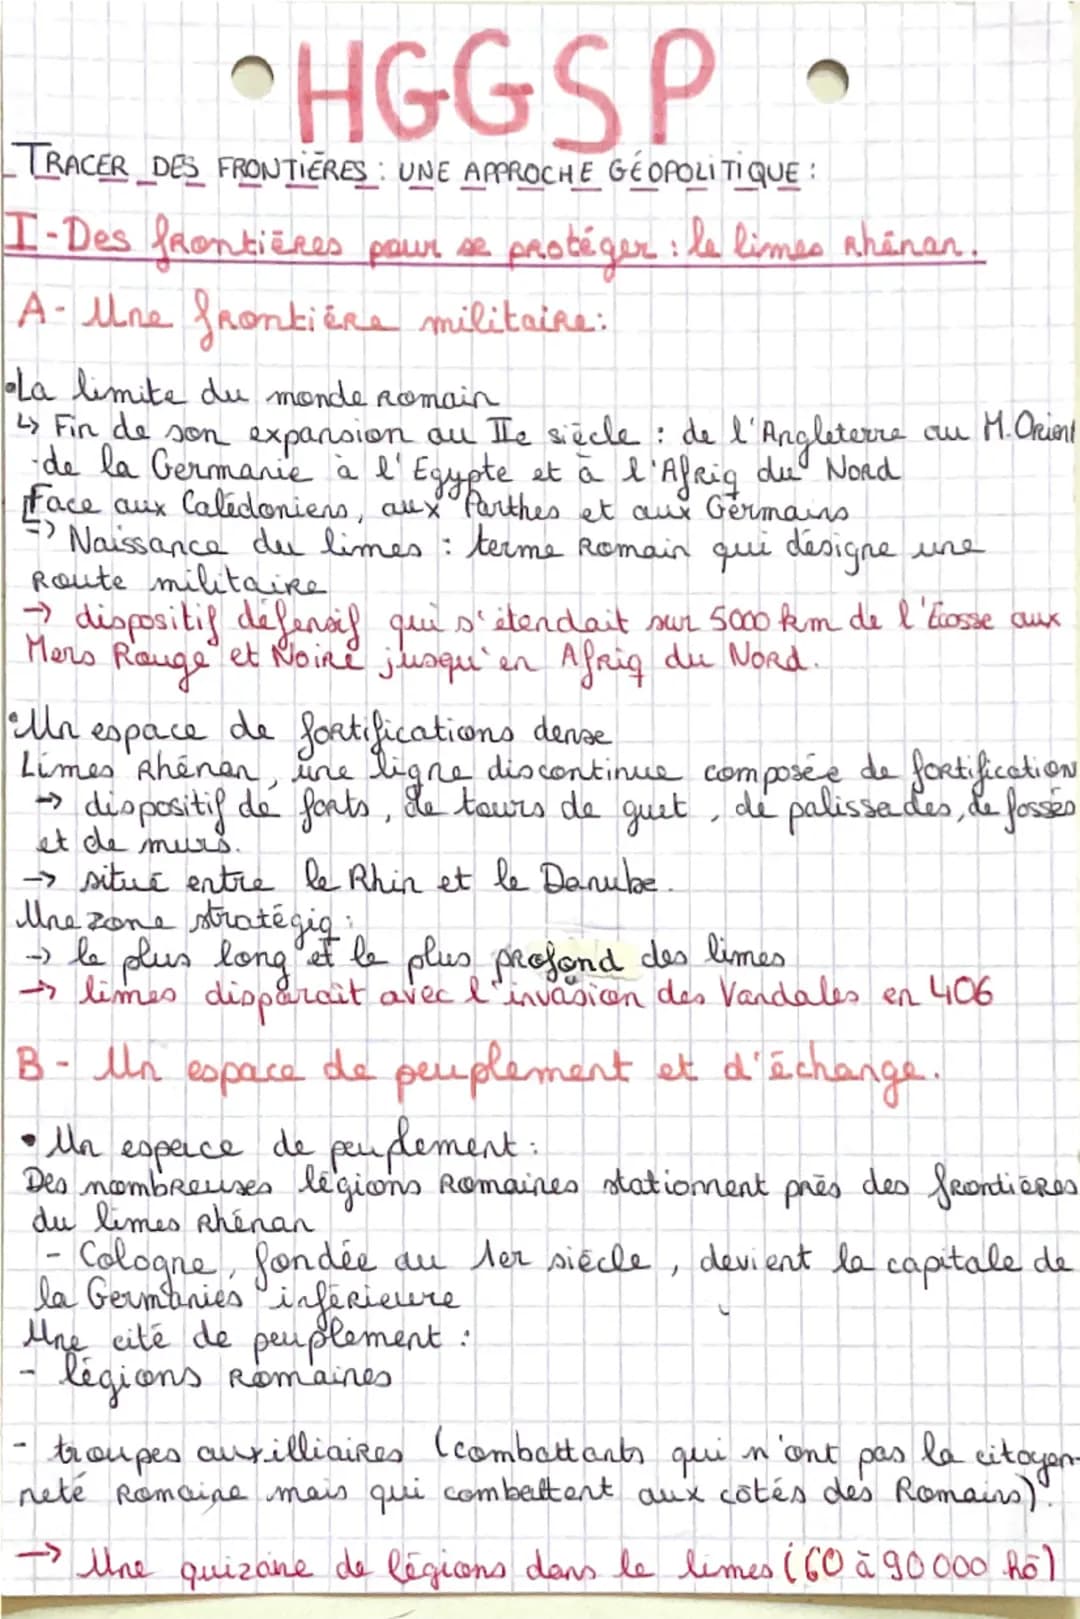 HGGSP
TRACER DES FRONTIÈRES : UNE APPROCHE GÉOPOLITIQUE :
I-Des frontières pour se protéger : le limes rhénan.
A- Une frontière militaire:
•La limite du monde romain
↳ Fin de son expansion au IIe siècle : de l'Angleterre au M.Orient
·de la Germanie à l'Egypte et à l'Afriq du Nord
Face aux Calédoniens, aux Parthes et aux Germains
=> Naissance du limes : terme Romain qui désigne une
Route militaire
→ dispositif défensif qui s'étendait sur 5000 km de l'Écosse aux
Mers Rouge et Noire jusqu'en Afriq du Nord.
•Un espace de fortifications dense
Limes Rhénan, une ligne discontinue composée de fortification
→ dispositif de forts, de tours de guet, de palissades, de fossés
et de murs.
→ situé entre le Rhin et le Danube.
Une zone stratégiq :
→ le plus long et le plus profond des limes
→ limes disparait avec l'invasion des Vandales en 406
B- Un espace de peuplement et d'échange.
• Un espace de peuplement :
Des nombreuses légions Romaines stationnent près des frontières
du limes Rhénan
- Cologne, fondée au 1er siècle, devient la capitale de
la Germanies inférieure
Une cité de peuplement :
- légions Romaines
- troupes auxilliaires (combattants qui n'ont pas la citoyen-
neté Romaine mais qui combattent aux côtés des Romains).
→ Une quizaine de légions dans le limes (60 à 90 000 hō)